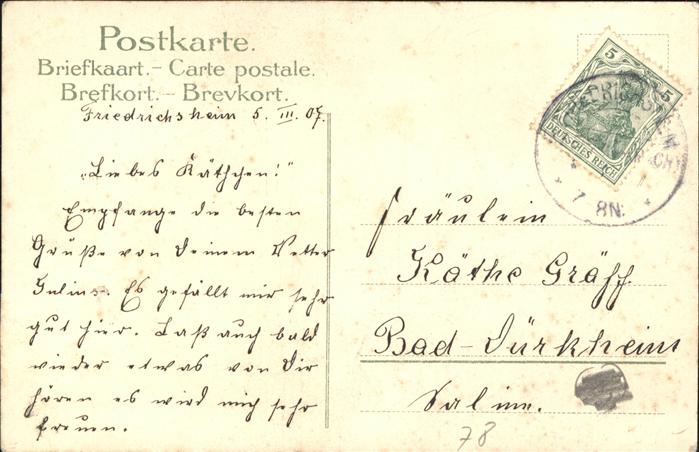 Postkarte.
Briefkaart. – Carte postale.
Brefkort. – Brevkort.
Friedrichsheim 5. III. 07.
„Liebes Käthchen!"
Empfange die besten
Grüße von Deinem Vetter
Julius. Es gefällt mir sehr
gut hier. Laß auch bald
wieder etwas von Dir
hören es wird mich sehr
freuen.
5 5
DEUTSCHES REICH
7 8N.
Fräulein
Käthe Gräff
Bad-Dürkheim
Saline.
78